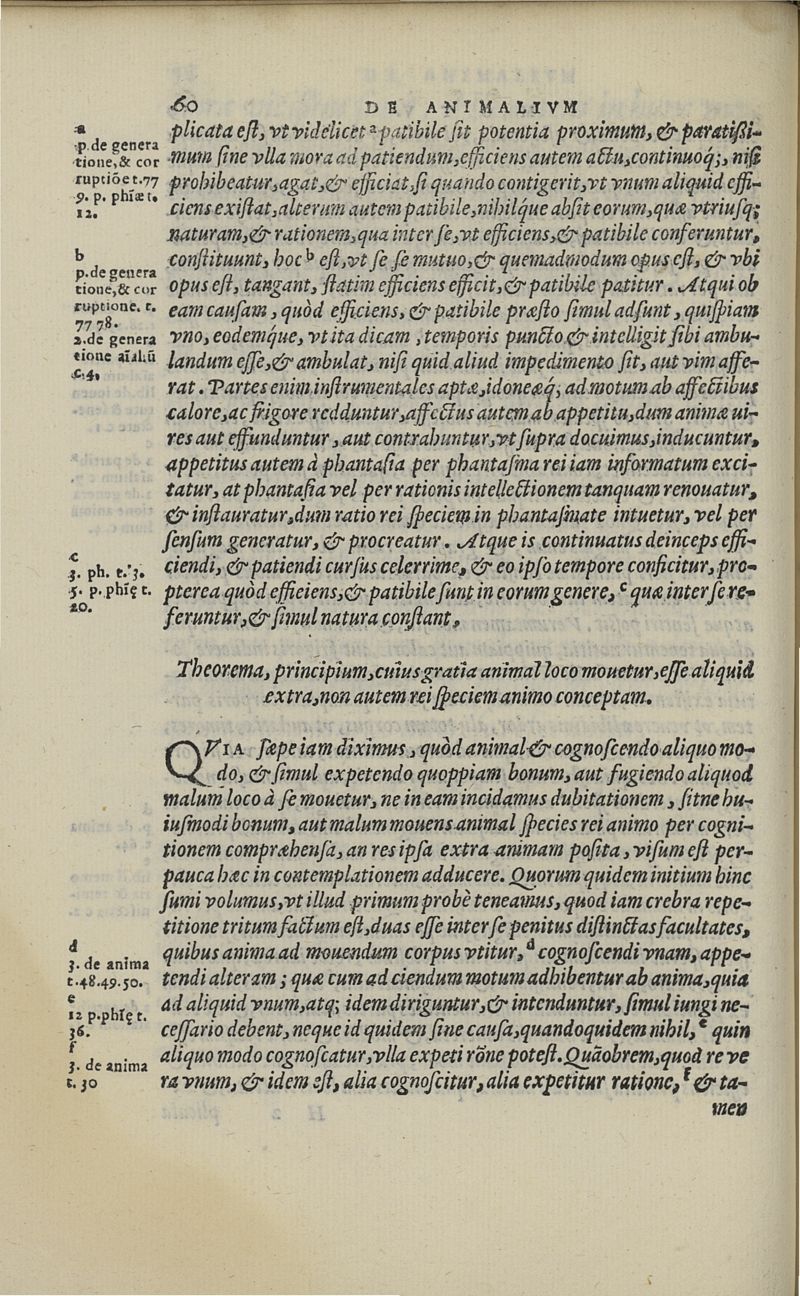 60 DE ANIMALIVM
plicata est, vt videlicet ᵃ patibile sit potentia proximum, & paratißi-
mum sine vlla mora ad patiendum, efficiens autem actu, continuoq́;, nisi
prohibeatur, agat, & efficiat, si quando contigerit, vt vnum aliquid effi-
ciens existat, alterum autem patibile, nihilque absit eorum, quæ vtriusq;
naturam, & rationem, qua inter se, vt efficiens, & patibile conferuntur,
constituunt, hoc ᵇ est, vt se se mutuo, & quemadmodum opus est, & vbi
opus est, tangant, statim efficiens efficit, & patibile patitur. Atqui ob
eam causam, quòd efficiens, & patibile præsto simul adsunt, quispiam
vno, eodemque, vt ita dicam, temporis puncto & intelligit sibi ambu-
landum esse, & ambulat, nisi quid aliud impedimento sit, aut vim affe-
rat. Partes enim instrumentales aptæ, idoneæq́; ad motum ab affectibus
calore, ac frigore redduntur, affectus autem ab appetitu, dum animæ ui-
res aut effunduntur, aut contrahuntur, vt supra docuimus, inducuntur,
appetitus autem à phantasia per phantasma rei iam informatum exci-
tatur, at phantasia vel per rationis intellectionem tanquam renouatur,
& instauratur, dum ratio rei speciem in phantasmate intuetur, vel per
sensum generatur, & procreatur. Atque is continuatus deinceps effi-
ciendi, & patiendi cursus celerrime, & eo ipso tempore conficitur, pro-
pterea quòd efficiens, & patibile sunt in eorum genere, ᶜ quæ inter se re-
feruntur, & simul natura constant.
Theorema, principium, cuius gratia animal loco mouetur, esse aliquid
extra, non autem rei speciem animo conceptam.
QVIA sæpe iam diximus, quòd animal & cognoscendo aliquo mo-
do, & simul expetendo quoppiam bonum, aut fugiendo aliquod
malum loco à se mouetur, ne in eam incidamus dubitationem, sitne hu-
iusmodi bonum, aut malum mouens animal species rei animo per cogni-
tionem compræhensa, an res ipsa extra animam posita, visum est per-
pauca hæc in contemplationem adducere. Quorum quidem initium hinc
sumi volumus, vt illud primum probè teneamus, quod iam crebra repe-
titione tritum factum est, duas esse inter se penitus distinctas facultates,
quibus anima ad mouendum corpus vtitur, ᵈ cognoscendi vnam, appe-
tendi alteram; quæ cum ad ciendum motum adhibentur ab anima, quia
ad aliquid vnum, atq; idem diriguntur, & intenduntur, simul iungi ne-
cessario debent, neque id quidem sine causa, quandoquidem nihil, ᵉ quin
aliquo modo cognoscatur, vlla expeti rõne potest. Quãobrem, quod re ve
ra vnum, & idem est, alia cognoscitur, alia expetitur ratione, ᶠ & ta-
men
a
p. de genera
tione, & cor
ruptiõe t.77
5. p. phiæ t.
12.
b
p. de genera
tione, & cor
ruptione. t.
77 78.
2. de genera
tione aīaliũ
c. 4.
c
3. ph. t. 3.
5. p. phię t.
20.
d
3. de anima
t.48.49.50.
e
12 p. phię t.
36.
f
3. de anima
t. 30